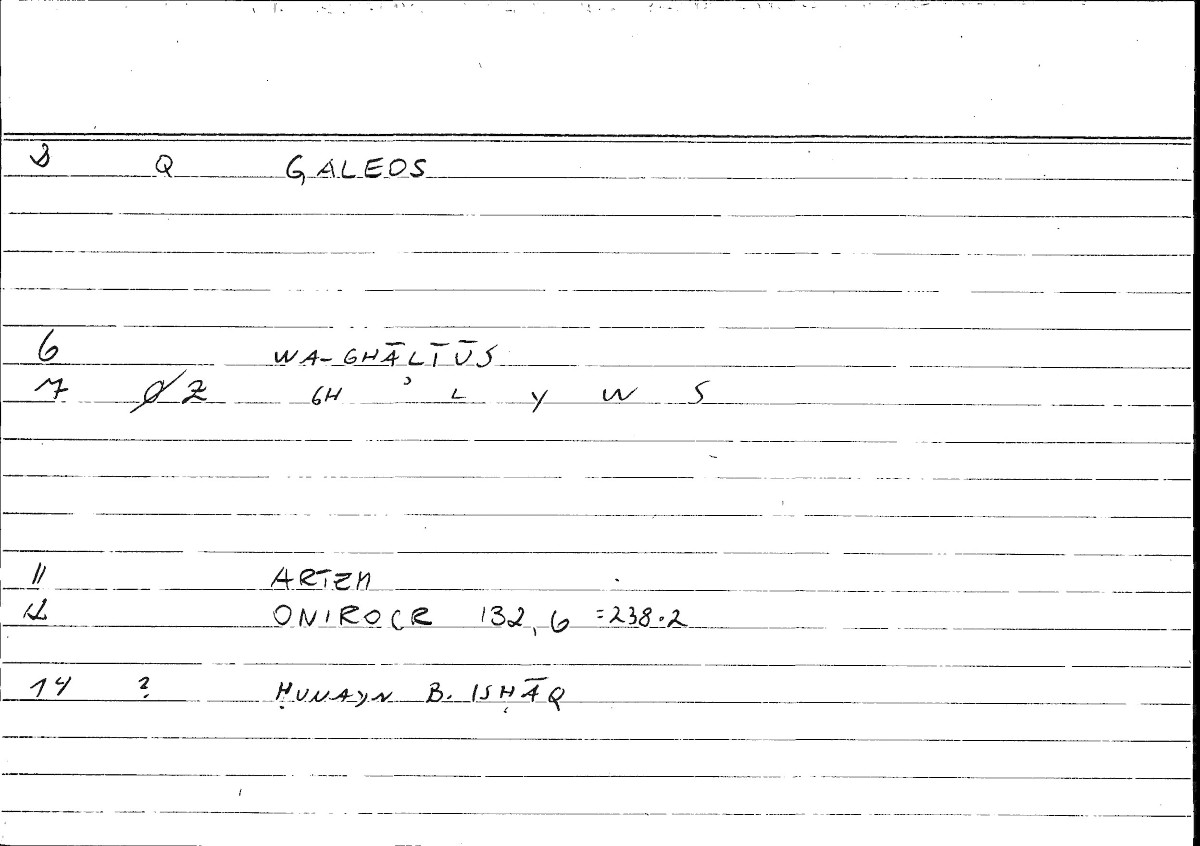 Q GALEOS
6 WA-GHĀLĪŪS
7 Z GH ʾ L Y W S
11 ARTEM
12 ONIROCR 132, 6 =238.2
14 ? ḤUNAYN B. ISḤĀQ